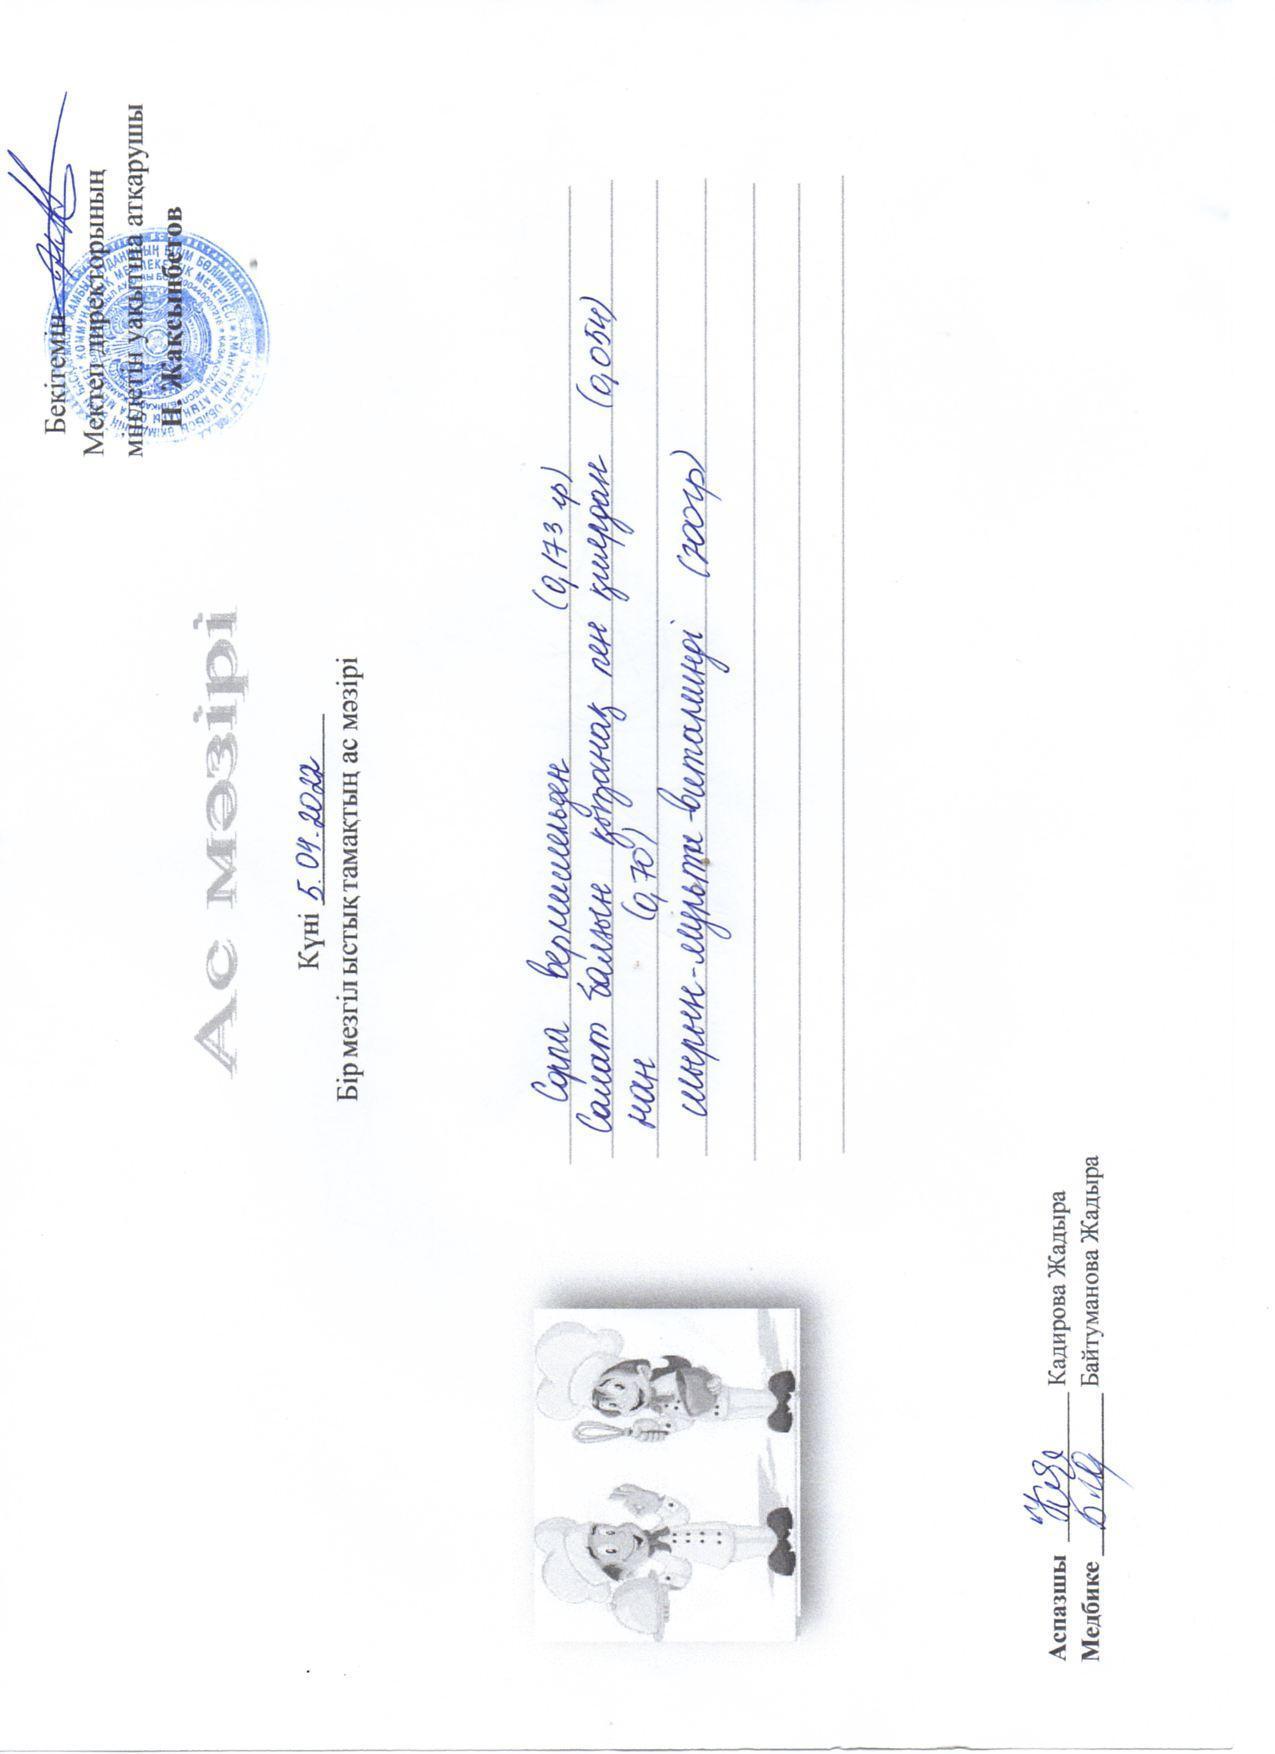 Бекітемін
Мектеп директорының
міндетін уақытша атқарушы
Н Жаксынбетов
Ас мәзірі
Күні 5.04.2022
Бір мезгіл ыстық тамақтың ас мәзірі
Сорпа вермишельден (0,173 гр)
Салат балғын қызанақ пен қиярдан (0,054)
нан (0,70)
шырын-мульти-витаминді (200гр)
Аспазшы Кадирова Жадыра
Медбике Байтуманова Жадыра